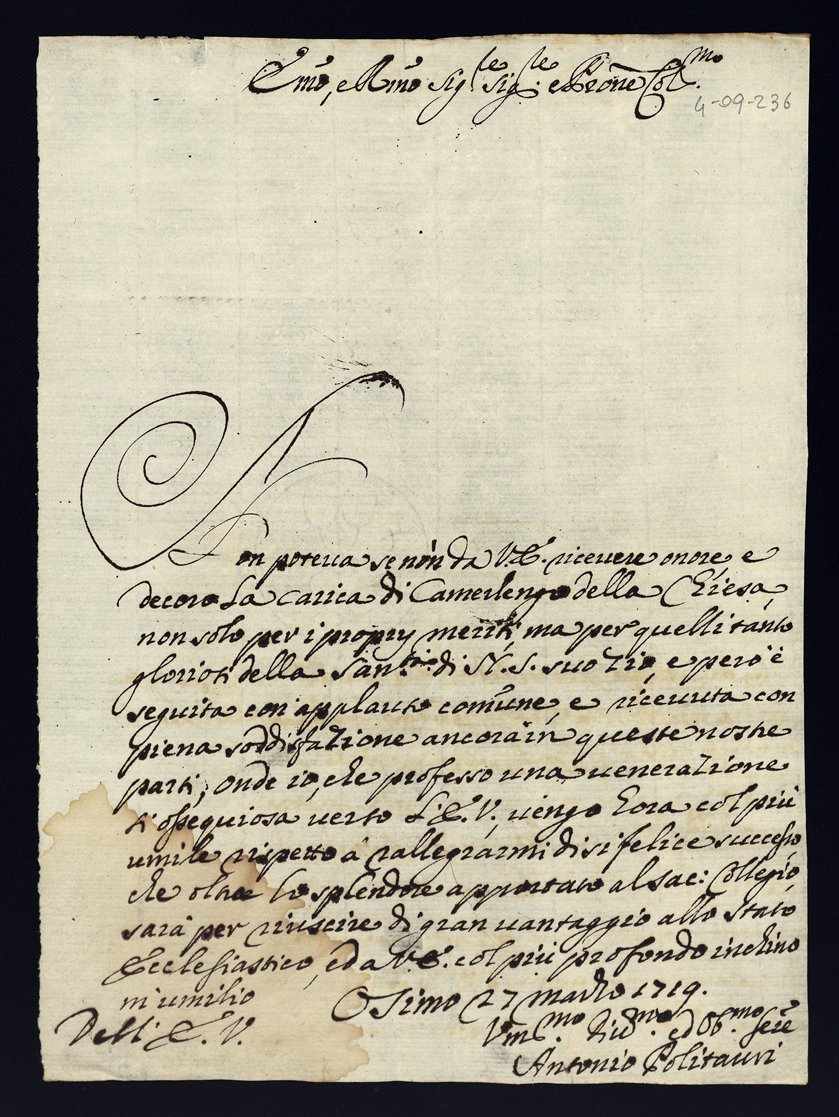 Emo, e Rmo Sig.re Sig.re e Prone Col.mo
4-09-236
Non poteva se non da V.E. ricevere onore, e
decoro la carica di Camerlengo della Chiesa,
non solo per i proprij meriti, ma per quelli tanto
gloriosi della San.tà di N.S. suo Zio, e però è
seguita con applauso comune, e ricevuta con
piena soddisfazione ancora in queste nostre
parti; onde io, che professo una venerazione
ossequiosa verso l'E.V., vengo hora col più
umile rispetto à rallegrarmi di sì felice successo
che oltre lo splendore apportato al sac: Collegio
sarà per riuscire di gran vantaggio allo Stato
Ecclesiastico, ed a V.E. col più profondo inchino
m'umilio Osimo 27 marzo 1719.
Dell'E.V.
Vm.mo Div.mo ed Obb.mo Serre
Antonio Politauri